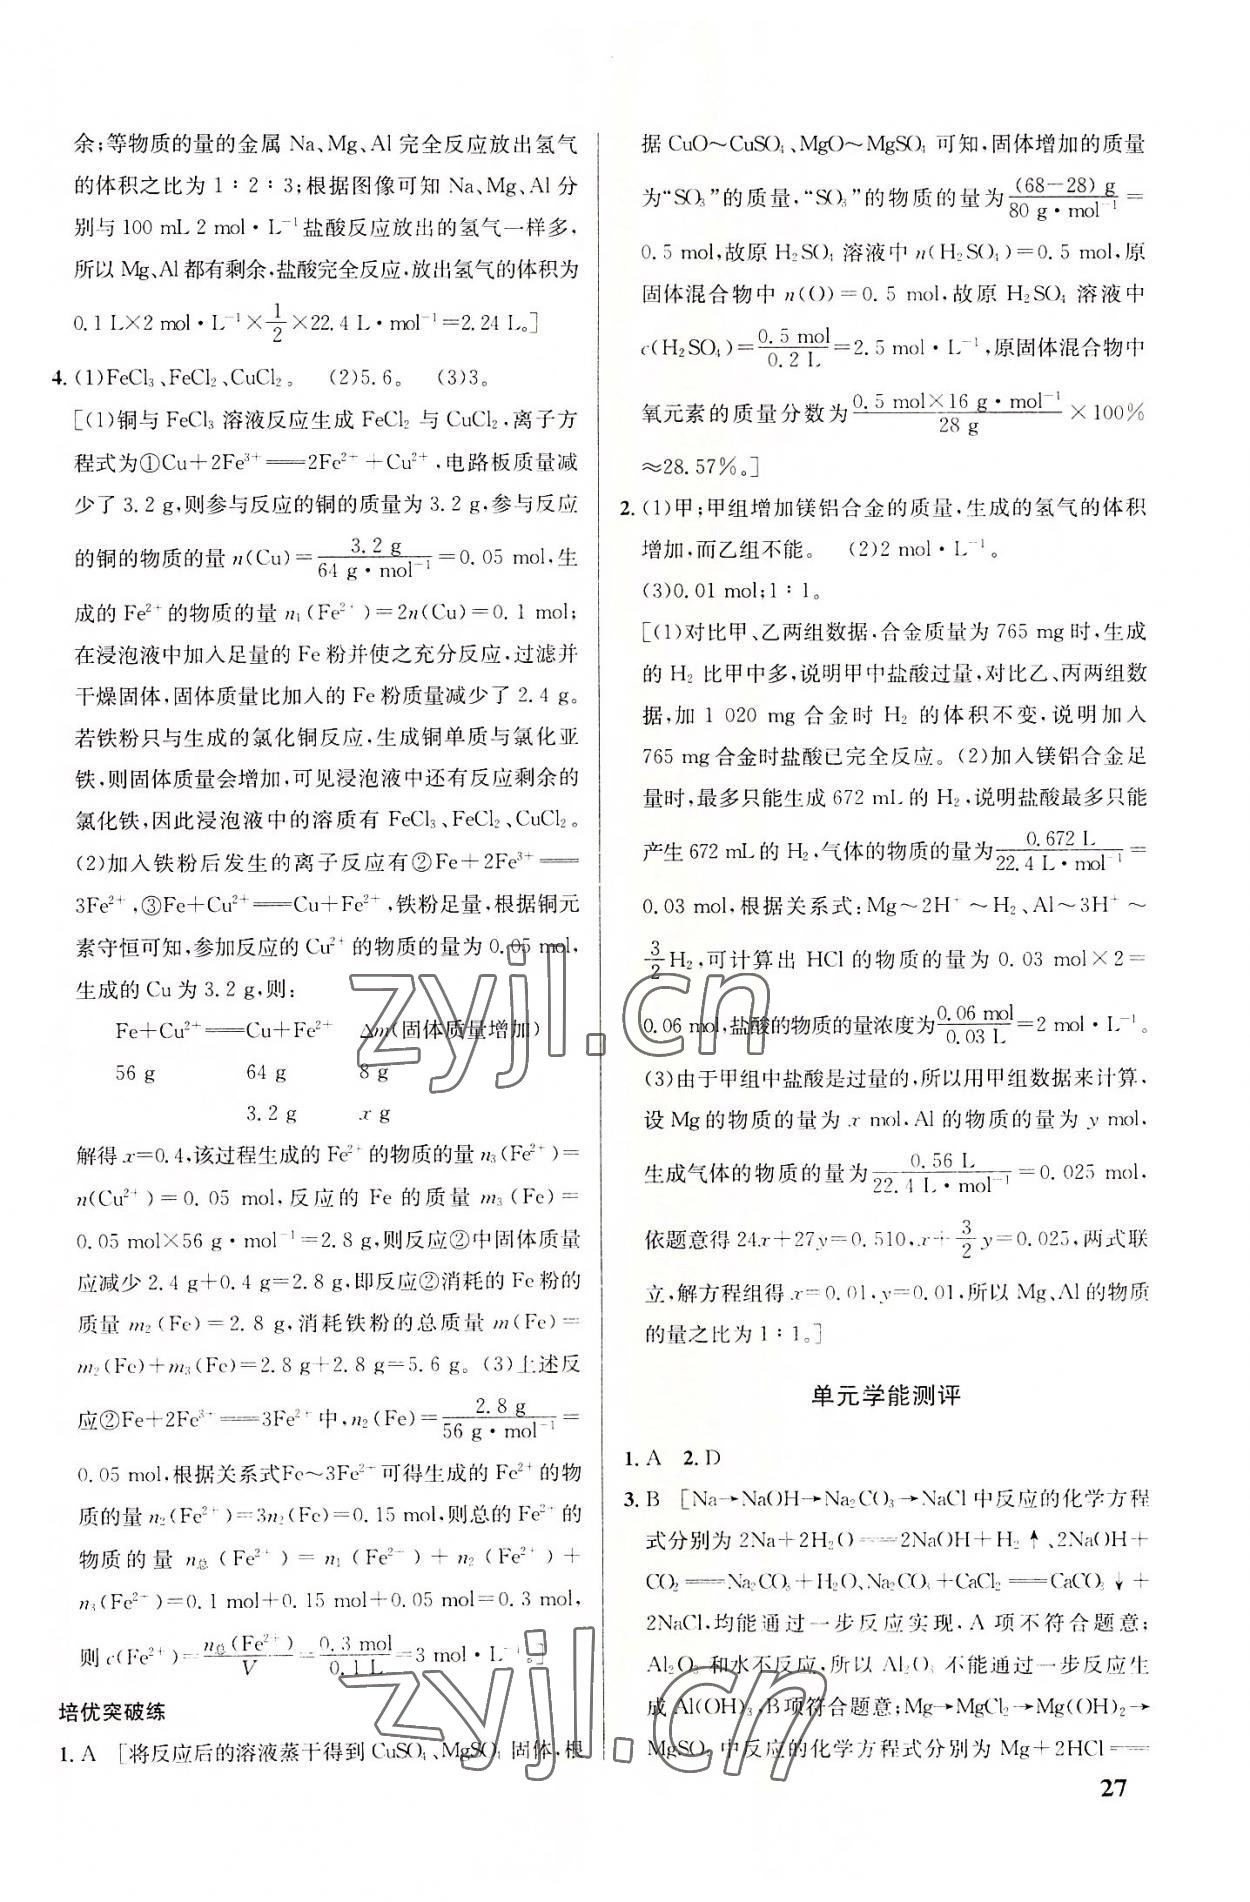 余;等物质的量的金属 Na、Mg、Al 完全反应放出氢气
的体积之比为 1∶2∶3;根据图像可知 Na、Mg、Al 分
别与 100 mL 2 mol·L⁻¹ 盐酸反应放出的氢气一样多,
所以 Mg、Al 都有剩余,盐酸完全反应,放出氢气的体积为
0.1 L×2 mol·L⁻¹×1/2×22.4 L·mol⁻¹=2.24 L。]
4. (1)FeCl₃、FeCl₂、CuCl₂。 (2)5.6。 (3)3。
[(1)铜与 FeCl₃ 溶液反应生成 FeCl₂ 与 CuCl₂,离子方
程式为①Cu+2Fe³⁺══2Fe²⁺+Cu²⁺,电路板质量减
少了 3.2 g,则参与反应的铜的质量为 3.2 g,参与反应
的铜的物质的量 n(Cu)=3.2 g/64 g·mol⁻¹=0.05 mol,生
成的 Fe²⁺ 的物质的量 n₁(Fe²⁺)=2n(Cu)=0.1 mol;
在浸泡液中加入足量的 Fe 粉并使之充分反应,过滤并
干燥固体,固体质量比加入的 Fe 粉质量减少了 2.4 g。
若铁粉只与生成的氯化铜反应,生成铜单质与氯化亚
铁,则固体质量会增加,可见浸泡液中还有反应剩余的
氯化铁,因此浸泡液中的溶质有 FeCl₃、FeCl₂、CuCl₂。
(2)加入铁粉后发生的离子反应有②Fe+2Fe³⁺══
3Fe²⁺,③Fe+Cu²⁺══Cu+Fe²⁺,铁粉足量,根据铜元
素守恒可知,参加反应的 Cu²⁺ 的物质的量为 0.05 mol,
生成的 Cu 为 3.2 g,则:
Fe+Cu²⁺══Cu+Fe²⁺ Δm(固体质量增加)
56 g 64 g 8 g
3.2 g x g
解得 x=0.4,该过程生成的 Fe²⁺ 的物质的量 n₃(Fe²⁺)=
n(Cu²⁺)=0.05 mol,反应的 Fe 的质量 m₃(Fe)=
0.05 mol×56 g·mol⁻¹=2.8 g,则反应②中固体质量
应减少 2.4 g+0.4 g=2.8 g,即反应②消耗的 Fe 粉的
质量 m₂(Fe)=2.8 g,消耗铁粉的总质量 m(Fe)=
m₂(Fe)+m₃(Fe)=2.8 g+2.8 g=5.6 g。(3)上述反
应②Fe+2Fe³⁺══3Fe²⁺ 中,n₂(Fe)=2.8 g/56 g·mol⁻¹=
0.05 mol,根据关系式Fe~3Fe²⁺可得生成的 Fe²⁺ 的物
质的量 n₂(Fe²⁺)=3n₂(Fe)=0.15 mol,则总的 Fe²⁺ 的
物质的量 n总(Fe²⁺)=n₁(Fe²⁺)+n₂(Fe²⁺)+
n₃(Fe²⁺)=0.1 mol+0.15 mol+0.05 mol=0.3 mol,
则 c(Fe²⁺)=n总(Fe²⁺)/V=0.3 mol/0.1 L=3 mol·L⁻¹。]
培优突破练
1. A [将反应后的溶液蒸干得到 CuSO₄、MgSO₄ 固体,根
据 CuO~CuSO₄、MgO~MgSO₄ 可知,固体增加的质量
为“SO₃”的质量,“SO₃”的物质的量为(68-28) g/80 g·mol⁻¹=
0.5 mol,故原 H₂SO₄ 溶液中 n(H₂SO₄)=0.5 mol,原
固体混合物中 n(O)=0.5 mol,故原 H₂SO₄ 溶液中
c(H₂SO₄)=0.5 mol/0.2 L=2.5 mol·L⁻¹,原固体混合物中
氧元素的质量分数为0.5 mol×16 g·mol⁻¹/28 g×100%
≈28.57%。]
2. (1)甲;甲组增加镁铝合金的质量,生成的氢气的体积
增加,而乙组不能。 (2)2 mol·L⁻¹。
(3)0.01 mol;1∶1。
[(1)对比甲、乙两组数据,合金质量为 765 mg 时,生成
的 H₂ 比甲中多,说明甲中盐酸过量,对比乙、丙两组数
据,加 1 020 mg 合金时 H₂ 的体积不变,说明加入
765 mg 合金时盐酸已完全反应。(2)加入镁铝合金足
量时,最多只能生成 672 mL 的 H₂,说明盐酸最多只能
产生 672 mL 的 H₂,气体的物质的量为0.672 L/22.4 L·mol⁻¹=
0.03 mol,根据关系式:Mg~2H⁺~H₂、Al~3H⁺~
3/2H₂,可计算出 HCl 的物质的量为 0.03 mol×2=
0.06 mol,盐酸的物质的量浓度为0.06 mol/0.03 L=2 mol·L⁻¹。
(3)由于甲组中盐酸是过量的,所以用甲组数据来计算,
设 Mg 的物质的量为 x mol,Al 的物质的量为 y mol,
生成气体的物质的量为0.56 L/22.4 L·mol⁻¹=0.025 mol,
依题意得 24x+27y=0.510,x+3/2y=0.025,两式联
立,解方程组得 x=0.01,y=0.01,所以 Mg、Al 的物质
的量之比为 1∶1。]
单元学能测评
1. A 2. D
3. B [Na→NaOH→Na₂CO₃→NaCl 中反应的化学方程
式分别为 2Na+2H₂O══2NaOH+H₂↑、2NaOH+
CO₂══Na₂CO₃+H₂O、Na₂CO₃+CaCl₂══CaCO₃↓+
2NaCl,均能通过一步反应实现,A 项不符合题意;
Al₂O₃ 和水不反应,所以 Al₂O₃ 不能通过一步反应生
成 Al(OH)₃,B 项符合题意;Mg→MgCl₂→Mg(OH)₂→
MgSO₄ 中反应的化学方程式分别为 Mg+2HCl══
27
zyjl.cn
zyjl.cn